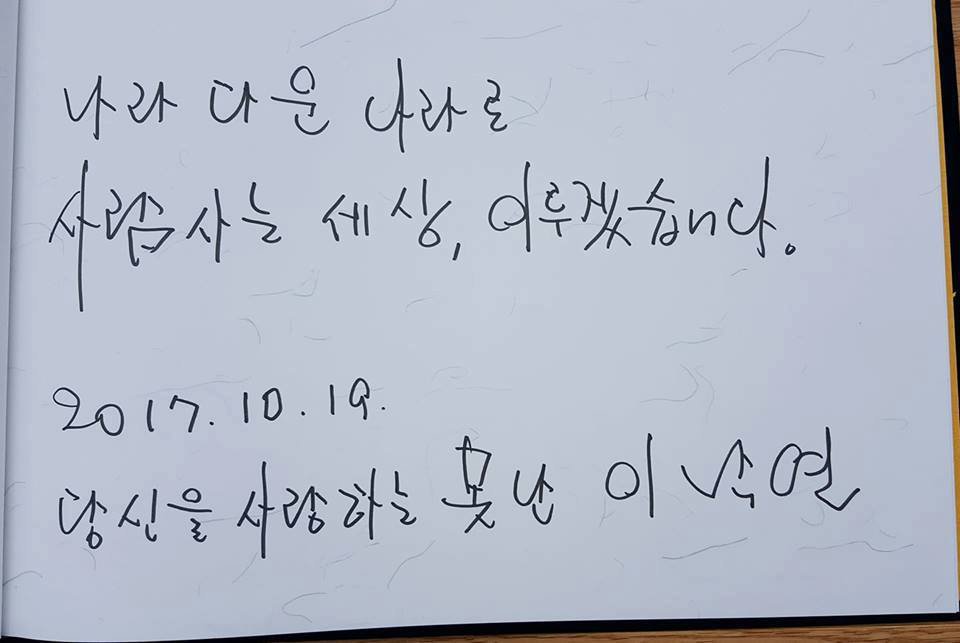 나라 다운 나라로
사람사는 세상, 이루겠습니다.
2017. 10. 19.
당신을 사랑하는 못난 이낙연